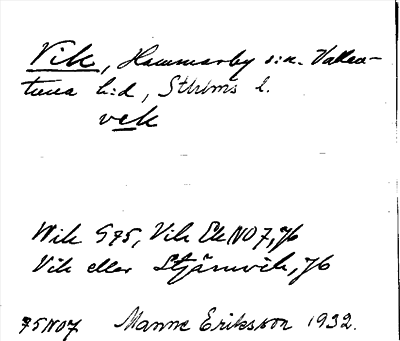 Vik, Hammarby s:n. Vallen-
tuna h:d, Sthlms l.
vek
Wik G95, Vik EkNO7, J6
Vik eller Stjärnvik, J6
75NO7 Manne Eriksson 1932.